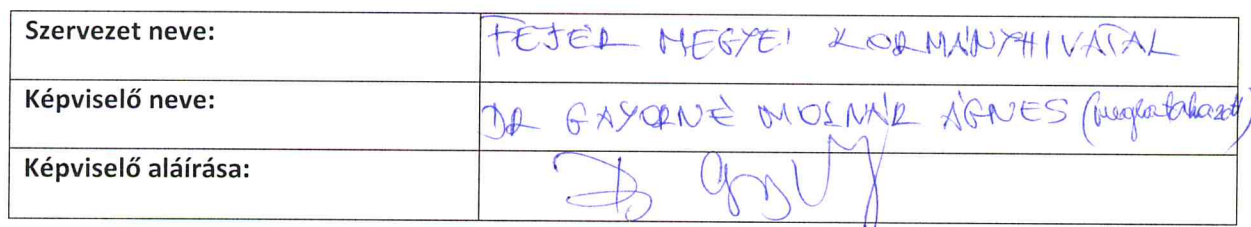 Szervezet neve: FEJÉR MEGYEI KORMÁNYHIVATAL
Képviselő neve: DR GAYORNÉ MOLNÁR ÁGNES (meghatalmazott)
Képviselő aláírása: